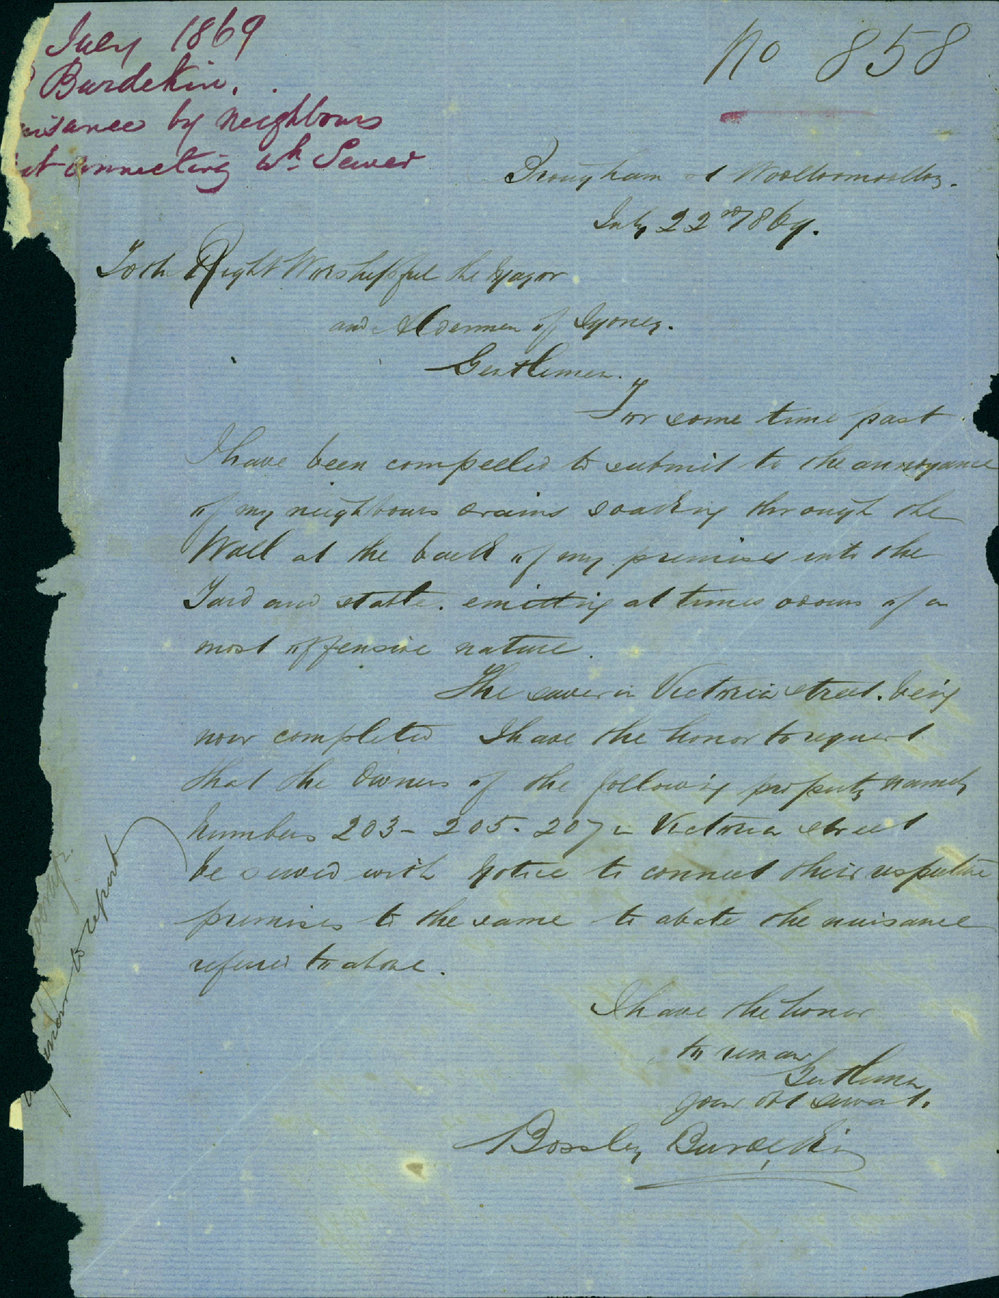 July 1869
Burdekin.
by neighbours
connecting wh Sewer
No 858
Brougham st Woolloomoolloo.
July 22nd 1869.
To the Right Worshipful the Mayor
and Aldermen of Sydney.
Gentlemen.
For some time past
I have been compelled to submit to the annoyance
of my neighbours drains soaking through the
Wall at the back of my premises into the
Yard and stable. emitting at times odours of a
most offensive nature.
The sewer in Victoria street. being
now completed I have the honor to request
that the Owners of the following property namely
Numbers 203 - 205 - 207 in Victoria street
be served with Notice to connect their respective
premises to the same to abate the nuisance
referred to above.
I have the honor
to remain
Gentlemen
your obt servant.
Bossley Burdekin
to report